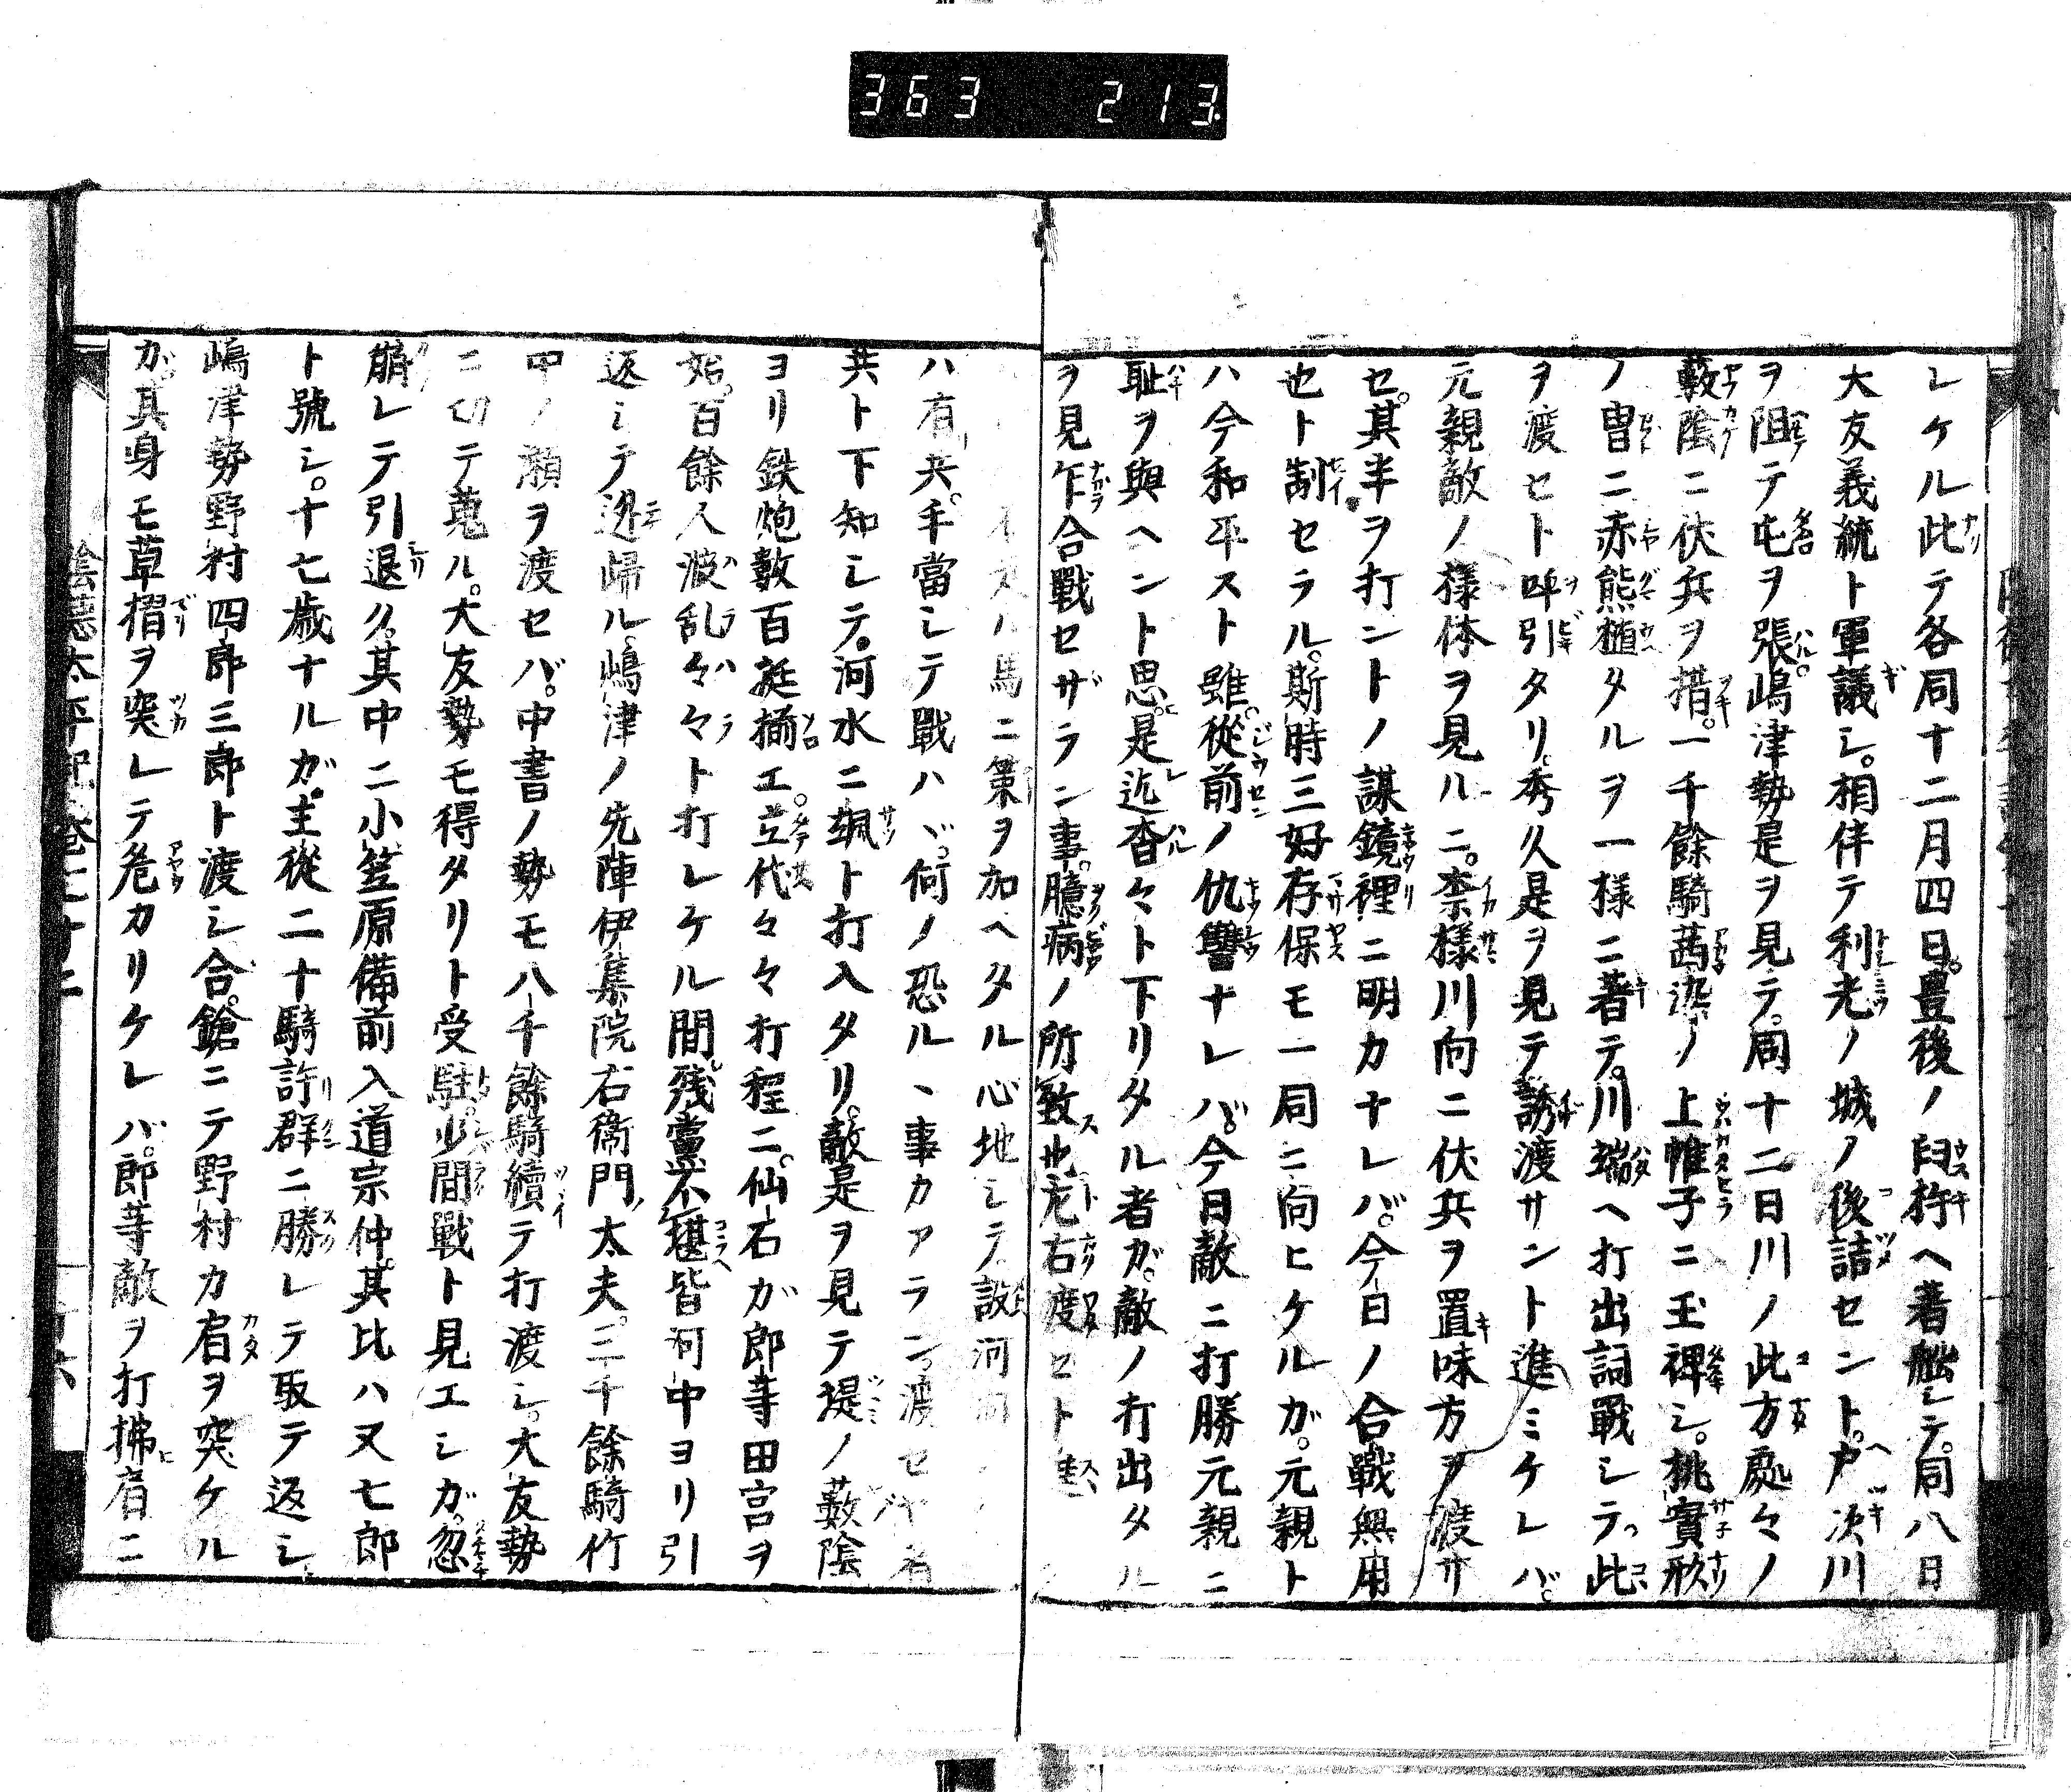 363 213
レケル此テ各同十二月四日。豊後ノ臼杵ヘ著舩シテ。同八日
大友義統ト軍議シ。相伴テ利光ノ城ノ後詰セント。戸次川
ヲ阻テ屯ヲ張。嶋津勢是ヲ見テ。同十二日川ノ此方處々ノ
藪陰ニ伏兵ヲ措。一千餘騎茜染ノ上帷子ニ玉襷シ。桃實形
ノ冑ニ赤熊植タルヲ一様ニ著テ。川端ヘ打出詞戰シテ。此
ヲ渡セト呼引タリ。秀久是ヲ見テ誘渡サント進ミケレバ。
元親敵ノ様体ヲ見ルニ。柰様川向ニ伏兵ヲ置味方ヲ渡サ
セ。其半ヲ打ントノ謀鏡裡ニ明カナレバ。今日ノ合戰無用
也ト制セラル。斯時三好存保モ一同ニ向ヒケルガ。元親ト
ハ今和平スト雖。從前ノ仇讐ナレバ。今日敵ニ打勝元親ニ
恥ヲ與ヘント思。是迄杳々ト下リタル者ガ。敵ノ打出タル
ヲ見乍合戰セザラン事。臆病ノ所致也
馬ニ策ヲ加ヘタル心地シテ。
ハ有共。手當シテ戰ハヾ。何ノ恐ルヽ事カアラン。渡セヤ者
共ト下知シテ。河水ニ颯ト打入タリ。敵是ヲ見テ堤ノ藪陰
ヨリ鉄炮數百挺揃エ。立代々々打程ニ。仙石ガ郎等田宮ヲ
始。百餘人波乱々々々ト打レケル間。殘黨不堪皆河中ヨリ引
返シテ迯歸ル。嶋津ノ先陣伊集院右衞門太夫。三千餘騎竹
中ノ瀬ヲ渡セバ。中書ノ勢モ八千餘騎續テ打渡シ。大友勢
ニ切テ蒐ル。大友勢モ得タリト受駐。少間戰ト見エシガ。忽
崩レテ引退ク。其中ニ小笠原備前入道宗仲。其比ハ又七郎
ト號シ。十七歳ナルガ。主從二十騎許群ニ勝レテ取テ返シ。
嶋津勢野村四郎三郎ト渡シ合。鎗ニテ野村カ肩ヲ突ケル
ガ。其身モ草摺ヲ突レテ危カリケレバ。郎等敵ヲ打拂肩ニ
陰悳太平記卷